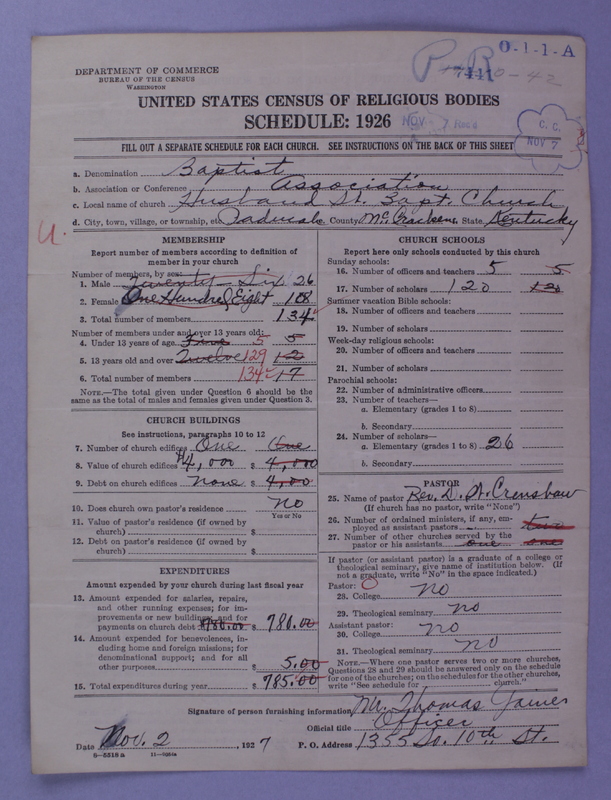 O-1-1-A
7441
DEPARTMENT OF COMMERCE
BUREAU OF THE CENSUS
WASHINGTON
UNITED STATES CENSUS OF RELIGIOUS BODIES
SCHEDULE: 1926
NOV 7 Rec'd
C. C.
NOV 7
FILL OUT A SEPARATE SCHEDULE FOR EACH CHURCH. SEE INSTRUCTIONS ON THE BACK OF THIS SHEET
a. Denomination Baptist
b. Association or Conference Association
c. Local name of church Husband St. Bapt. Church
d. City, town, village, or township, etc Paducah County McCracken State Kentucky
U.
MEMBERSHIP
Report number of members according to definition of
member in your church
Number of members, by sex:
1. Male Twenty-Six 26
2. Female One Hundred Eight 108
3. Total number of members 134
Number of members under and over 13 years old:
4. Under 13 years of age Five 5 5
5. 13 years old and over Twelve 129 12
6. Total number of members 134 17
NOTE.—The total given under Question 6 should be the
same as the total of males and females given under Question 3.
CHURCH BUILDINGS
See instructions, paragraphs 10 to 12
7. Number of church edifices One One
8. Value of church edifices $4,000 $ 4,000
9. Debt on church edifices None $ 4,00
10. Does church own pastor's residence No
Yes or No
11. Value of pastor's residence (if owned by
church) $
12. Debt on pastor's residence (if owned by
church) $
EXPENDITURES
Amount expended by your church during last fiscal year
13. Amount expended for salaries, repairs,
and other running expenses; for im-
provements or new building; and for
payments on church debt $780.00 $ 780.00
14. Amount expended for benevolences, in-
cluding home and foreign missions; for
denominational support; and for all
other purposes $ 5.00
15. Total expenditures during year $ 785.00
CHURCH SCHOOLS
Report here only schools conducted by this church
Sunday schools:
16. Number of officers and teachers 5 5
17. Number of scholars 120 120
Summer vacation Bible schools:
18. Number of officers and teachers
19. Number of scholars
Week-day religious schools:
20. Number of officers and teachers
21. Number of scholars
Parochial schools:
22. Number of administrative officers
23. Number of teachers—
a. Elementary (grades 1 to 8)
b. Secondary
24. Number of scholars—
a. Elementary (grades 1 to 8) 26
b. Secondary
PASTOR
25. Name of pastor Rev. D. W. Crenshaw
(If church has no pastor, write "None")
26. Number of ordained ministers, if any, em-
ployed as assistant pastors two
27. Number of other churches served by the
pastor or his assistants one one
If pastor (or assistant pastor) is a graduate of a college or
theological seminary, give name of institution below. (If
not a graduate, write "No" in the space indicated.)
Pastor:
28. College No
29. Theological seminary No
Assistant pastor:
30. College No
31. Theological seminary No
NOTE.—Where one pastor serves two or more churches,
Questions 28 and 29 should be answered only on the schedule
for one of the churches; on the schedules for the other churches,
write "See schedule for church."
Signature of person furnishing information Mr. Thomas
Official title Officer
Date Nov. 2, 1927 P. O. Address 1355 So. 10th St.
8-5518a